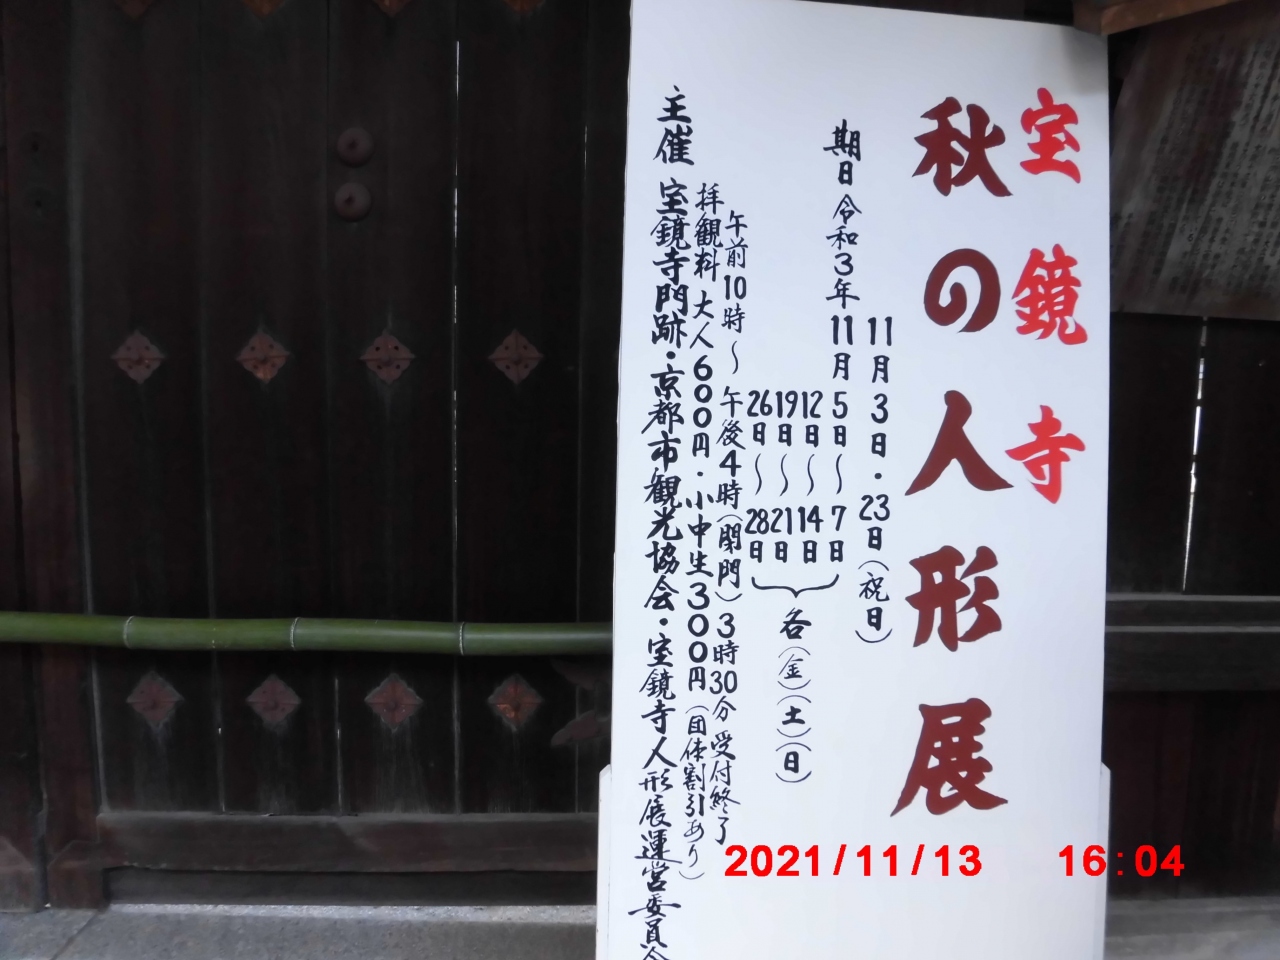 宝鏡寺
秋の人形展
11月3日・23日(祝日)
期日 令和3年11月5日〜7日
12日〜14日
19日〜21日
26日〜28日
各(金)(土)(日)
午前10時〜午後4時(閉門)3時30分 受付終了
拝観料 大人600円・小中生300円(団体割引あり)
主催 宝鏡寺門跡・京都市観光協会・宝鏡寺人形展運営委員会
2021/11/13 16:04